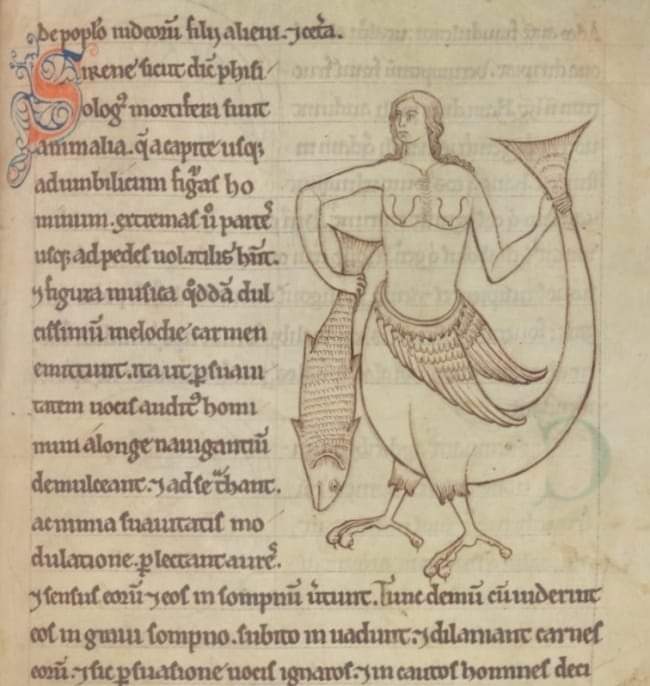 de poplo iudeoru̅ filij alieni· ⁊ cet̅a.
Sirene sicut dic̅ phisi
ologꝰ mortifera sunt
animalia. q̅ a capite usqꝫ
ad umbilicum figᷓas ho
minum. extremas ů partes
usqꝫ ad pedes uolatilis hn̅t.
⁊ figura musica qd̅da̅ dul
cissimu̅ melodie carmen
emittunt. ita ut ꝑ suaui
tatem uocis auditꝰ homi
num a longe nauigantiu̅
demulceant. ⁊ ad se t̅hant.
ac nimia suauitatis mo
dulatione ꝑlectant aures.
⁊ sensus eoru̅ ⁊ eos in sompnu̅ u̅tunt. Tunc demu̅ cu̅ uiderint
eos in graui sompno. subito inuadunt. ⁊ dilaniant carnes
eoru̅. ⁊ sic ꝑsuasione uocis ignaros. ⁊ in cautos homines deci